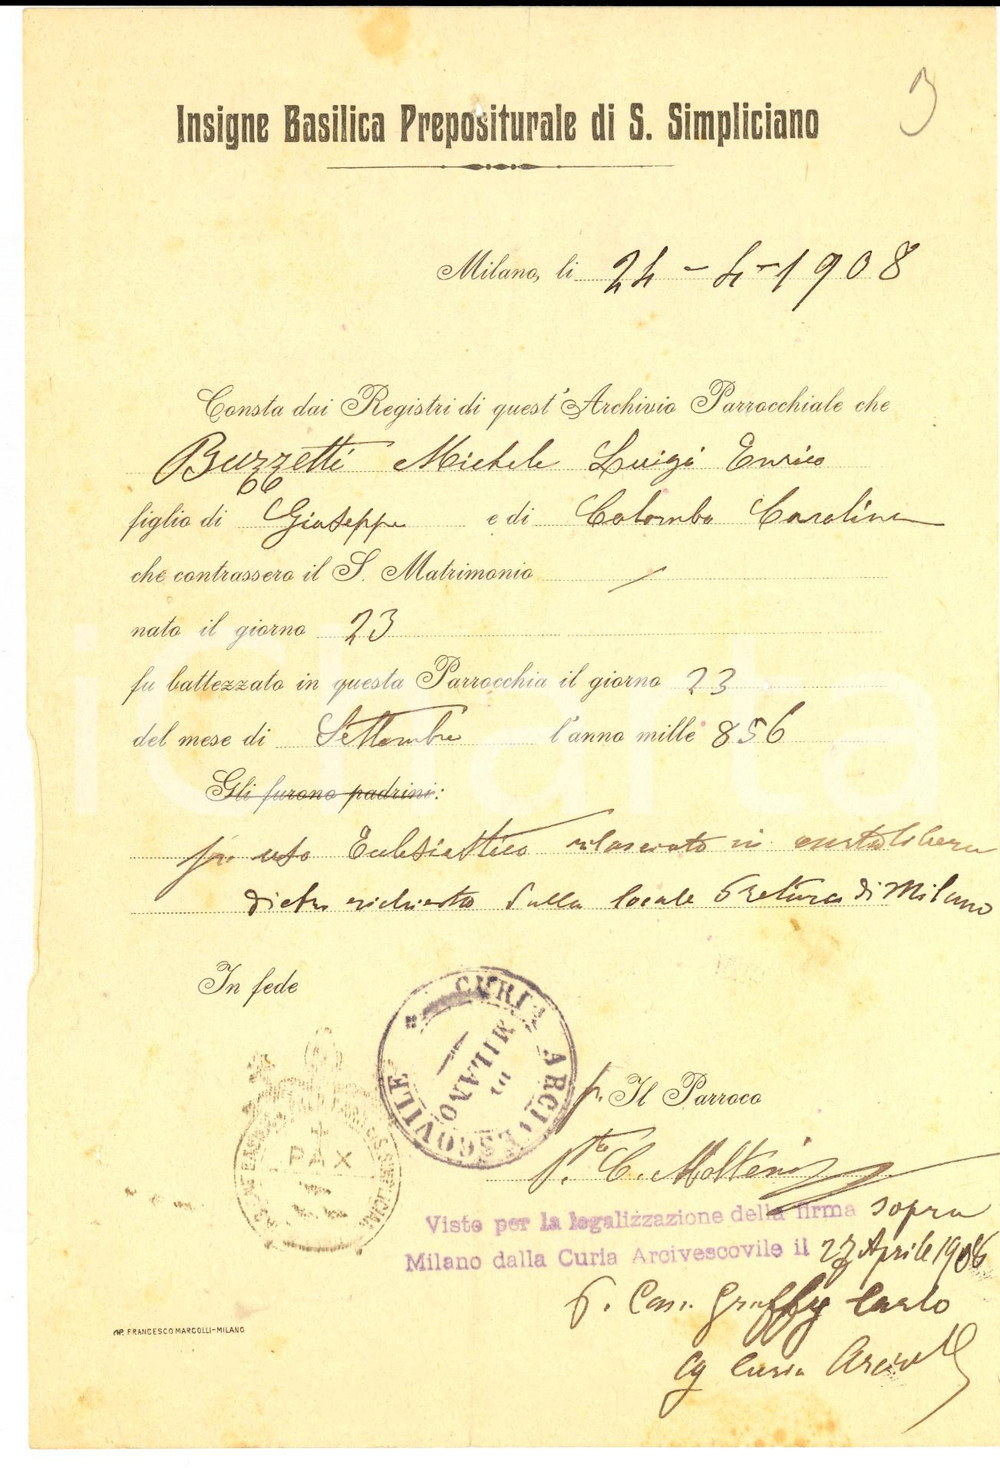 3
Insigne Basilica Prepositurale di S. Simpliciano
Milano, li 24 - 4 - 1908
Consta dai Registri di quest' Archivio Parrocchiale che
Buzzetti Michele Luigi Enrico
figlio di Giuseppe e di Colombo Carolina
che contrassero il S. Matrimonio
nato il giorno 23
fu battezzato in questa Parrocchia il giorno 23
del mese di Settembre l'anno mille 856
Gli furono padrini:
per uso Ecclesiastico rilasciato in carta libera
dietro richiesta dalla locale Pretura di Milano
In fede
CURIA ARCIVESCOVILE
MILANO
PAX
p. Il Parroco
P.te C. Molteni
Visto per la legalizzazione della firma sopra
Milano dalla Curia Arcivescovile il 27 Aprile 1908
Carlo
Curia Arciv
IMP. FRANCESCO MARCOLLI-MILANO